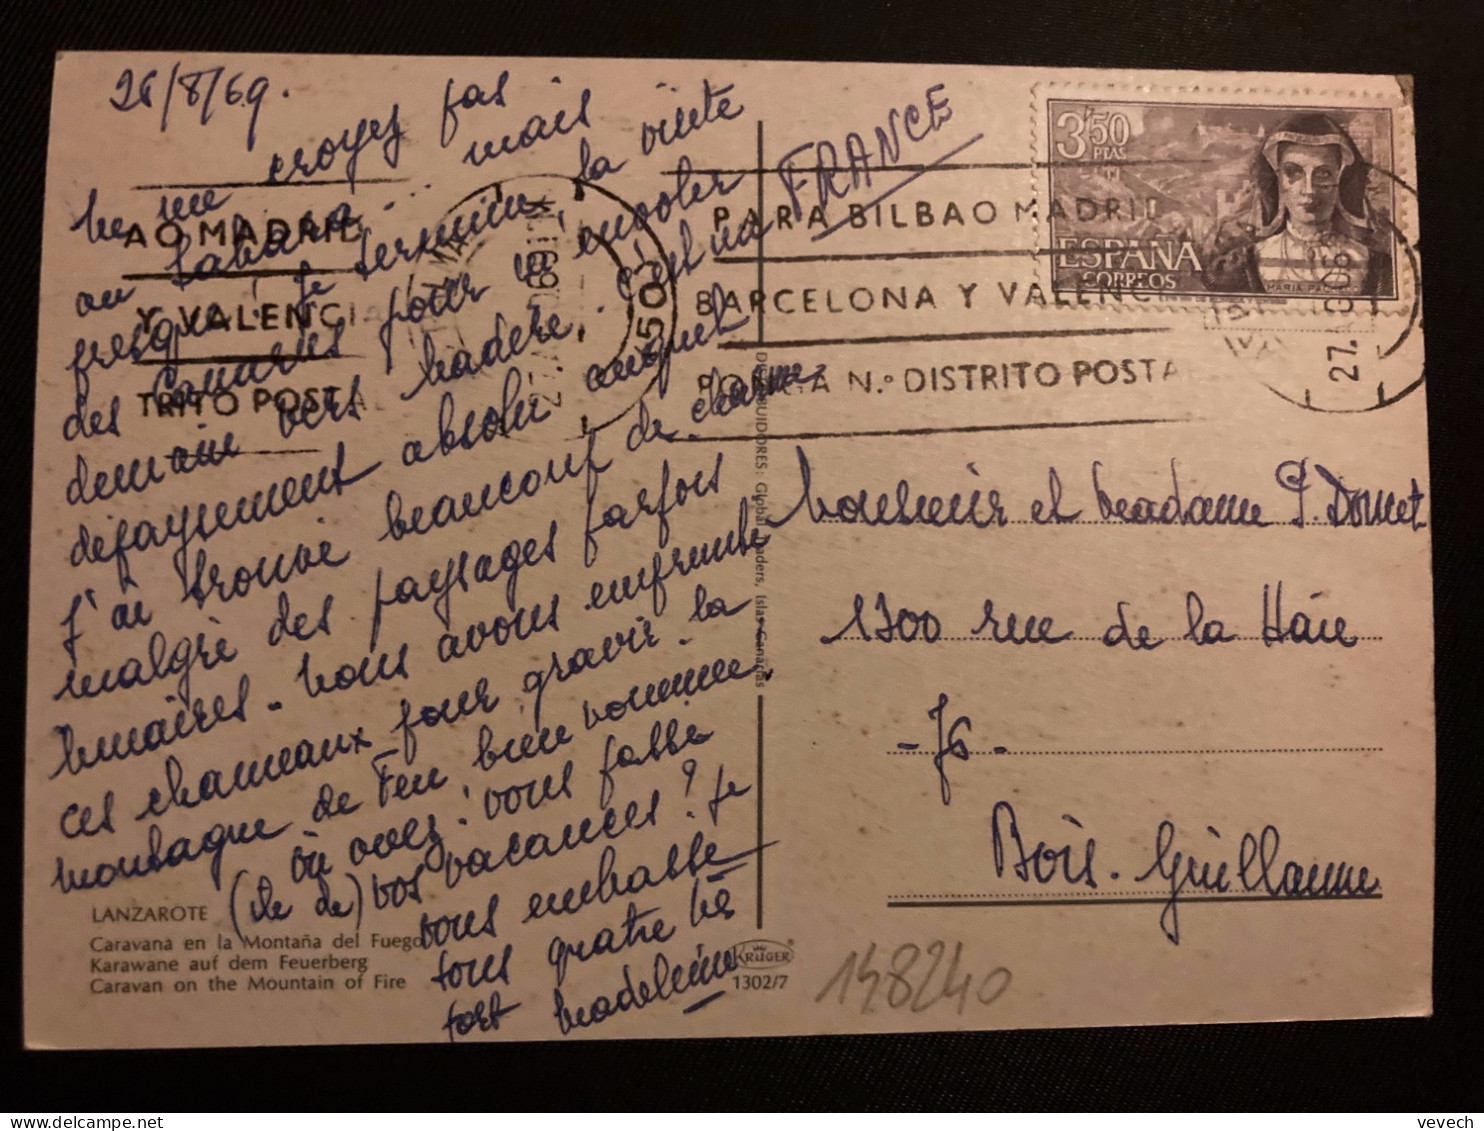 26/8/69.
ne me croyez pas
au Sahara... mais
presque! je termine la visite
des Canaries pour m'envoler
demain vers Madère. C'est un
dépaysement absolu auquel
j'ai trouvé beaucoup de charme
malgré des paysages parfois
lunaires. Nous avons emprunté
ces chameaux pour gravir la
montagne de Feu bien nommée.
où avez-vous passé
(île de) vos vacances? Je
vous embrasse
tous quatre très
fort Madeleine
LANZAROTE
Caravana en la Montaña del Fuego
Karawane auf dem Feuerberg
Caravan on the Mountain of Fire
DISTRIBUIDORES: Global Traders, Islas Canarias
KRÜGER
1302/7
AO MADRID
Y VALENCIA
TRITO POSTAL
FRANCE
PARA BILBAO MADRID
BARCELONA Y VALENCIA
PONGA N.º DISTRITO POSTAL
27.
3'50
PTAS
ESPAÑA
CORREOS
Monsieur et Madame P. Domet
1300 rue de la Haie
- 76 -
Bois-Guillaume
148240
vevech | delcampe.net